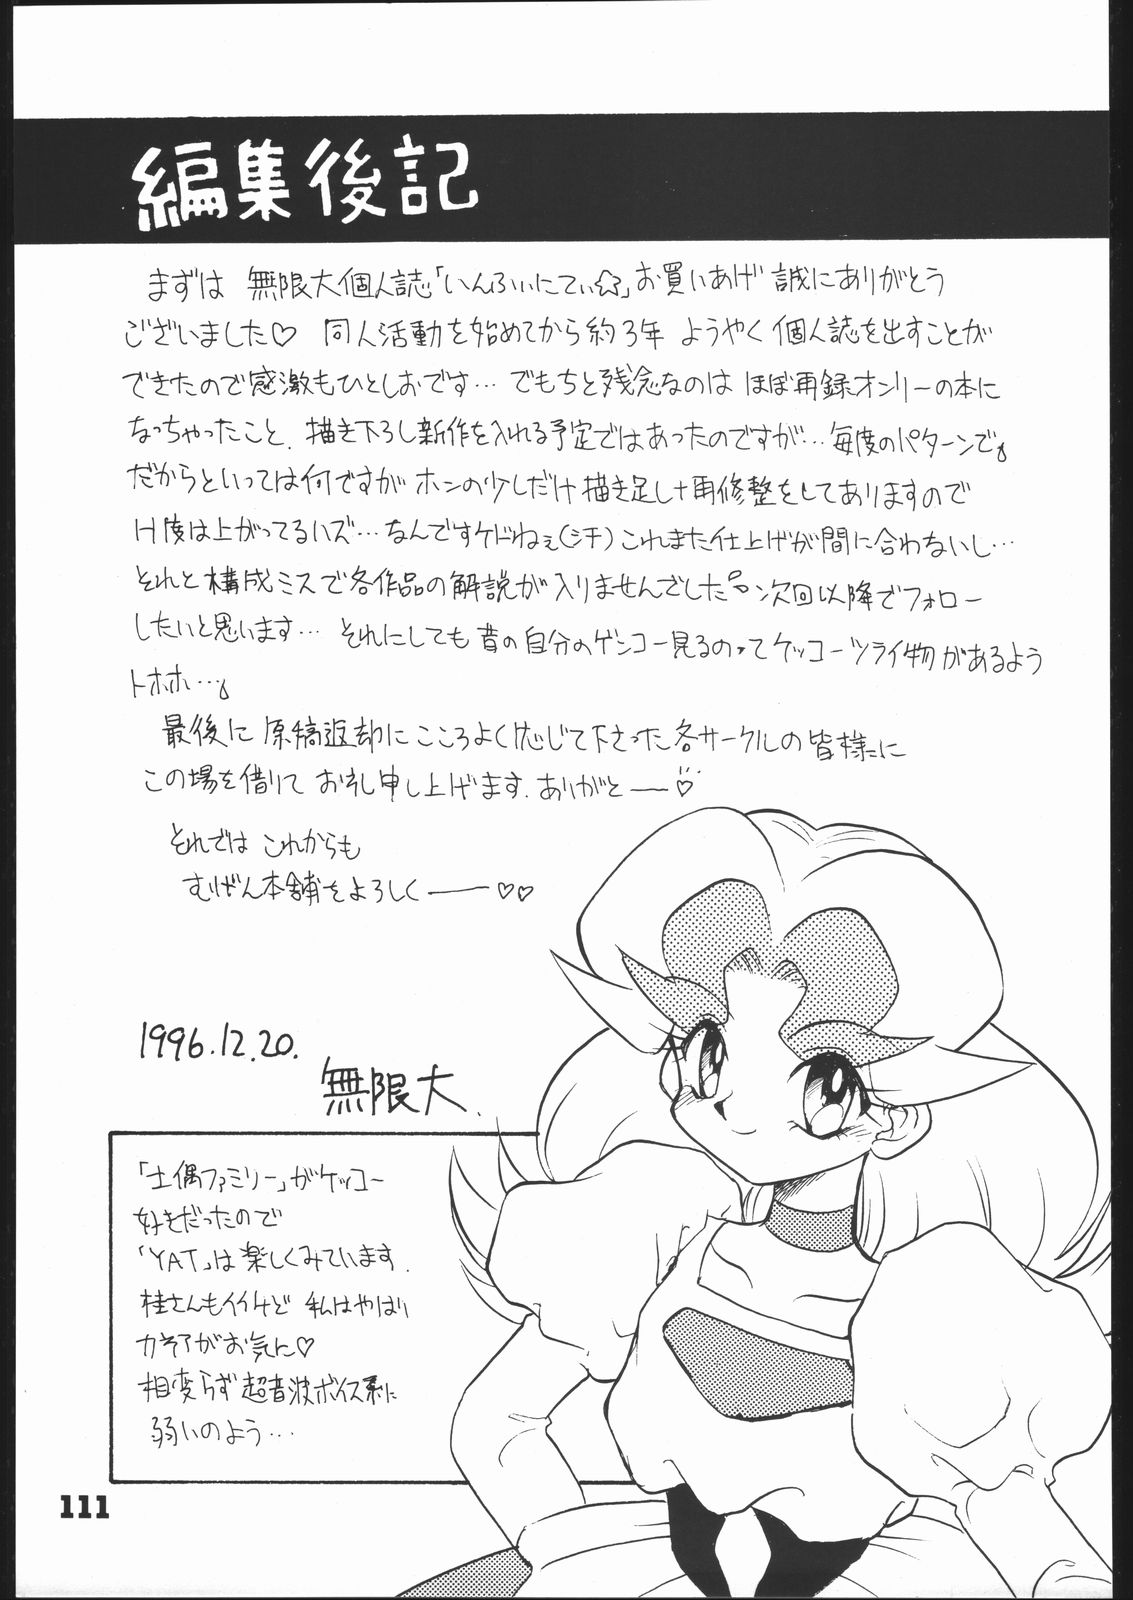 編集後記
まずは 無限大個人誌「いんふぃにてぃ☆」お買いあげ 誠にありがとう
ございました♡ 同人活動を始めてから約3年 ようやく個人誌を出すことが
できたので感激もひとしおです… でもちと残念なのは ほぼ再録オンリーの本に
なっちゃったこと、描き下ろし新作を入れる予定ではあったのですが…毎度のパターンで
だからといっては何ですがホンの少しだけ描き足し+再修整をしてありますので
H度は上がってるハズ…なんですケドねぇ(シチ)これまた仕上げが間に合わないし…
それと構成ミスで各作品の解説が入りませんでした 次回以降でフォロー
したいと思います… それにしても昔の自分のゲンコー見るのってケッコーツライ物があるよう
トホホ…
最後に 原稿返却にこころよく応じて下さった各サークルの皆様に
この場を借りて お礼申し上げます.ありがと――♡
それでは これからも
むげん本舗をよろしく――♡♡
1996.12.20.
無限大.
「土偶ファミリー」がケッコー
好きだったので
「YAT」は楽しくみています.
桂さんもイイけど 私はやはり
カネアがお気に♡
相変らず 超音波ボイス系に
弱いのよう…
111